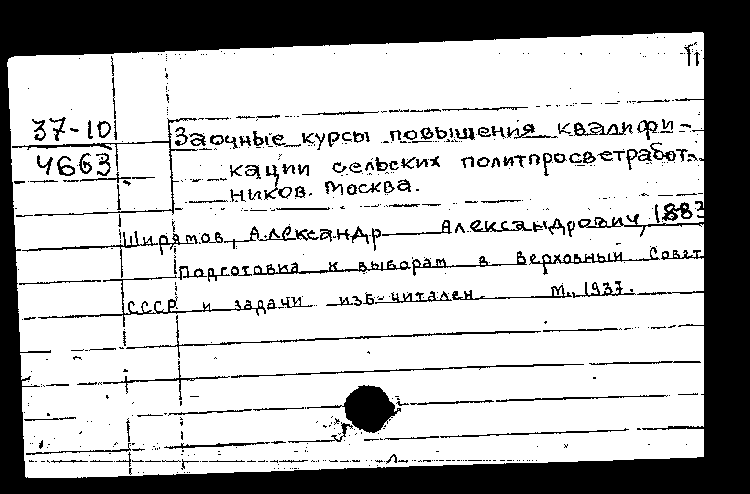 37-10
4663
Заочные курсы повышения квалифи-
кации сельских политпросветработ-
ников. Москва.
Ширямов, Александр Александрович, 1883
Подготовка к выборам в Верховный Совет
СССР и задачи изб-читален. М., 1937.